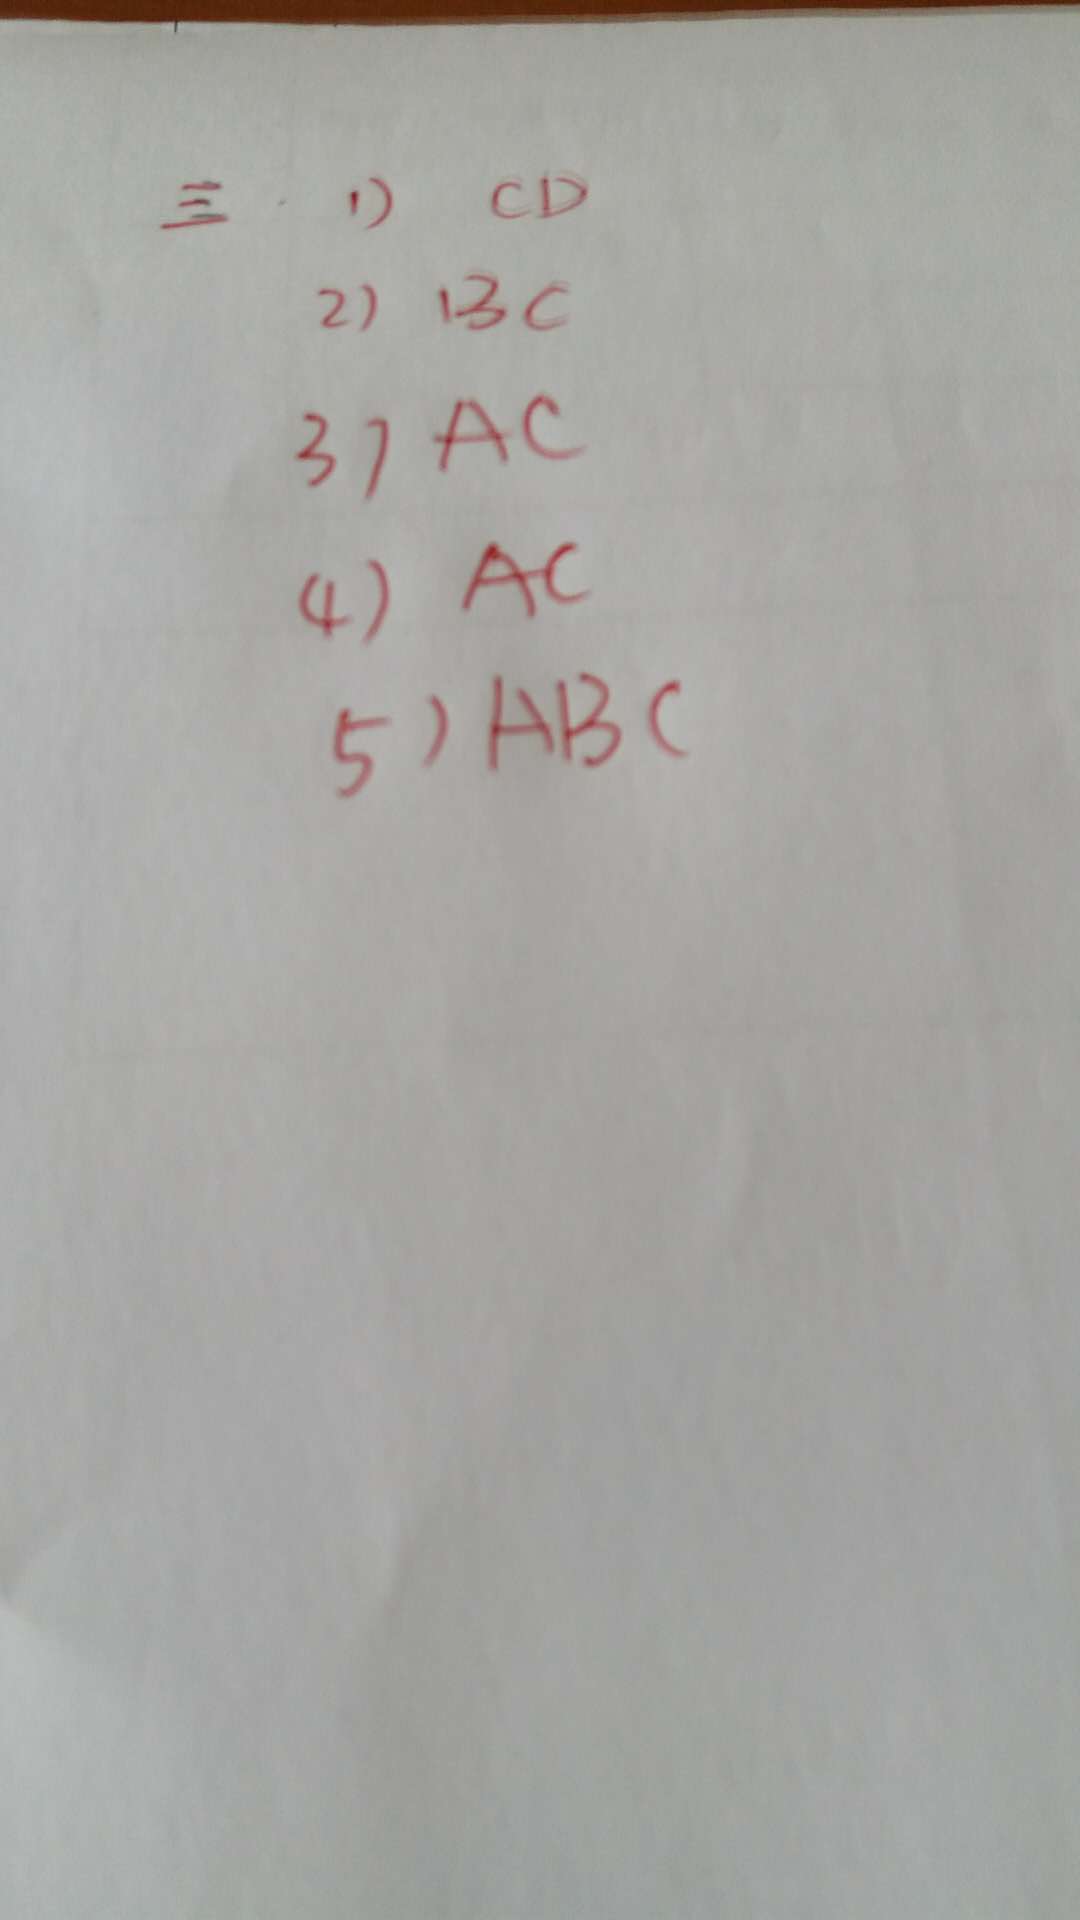 三. 1) CD
2) BC
3) AC
(4) AC
5) ABC